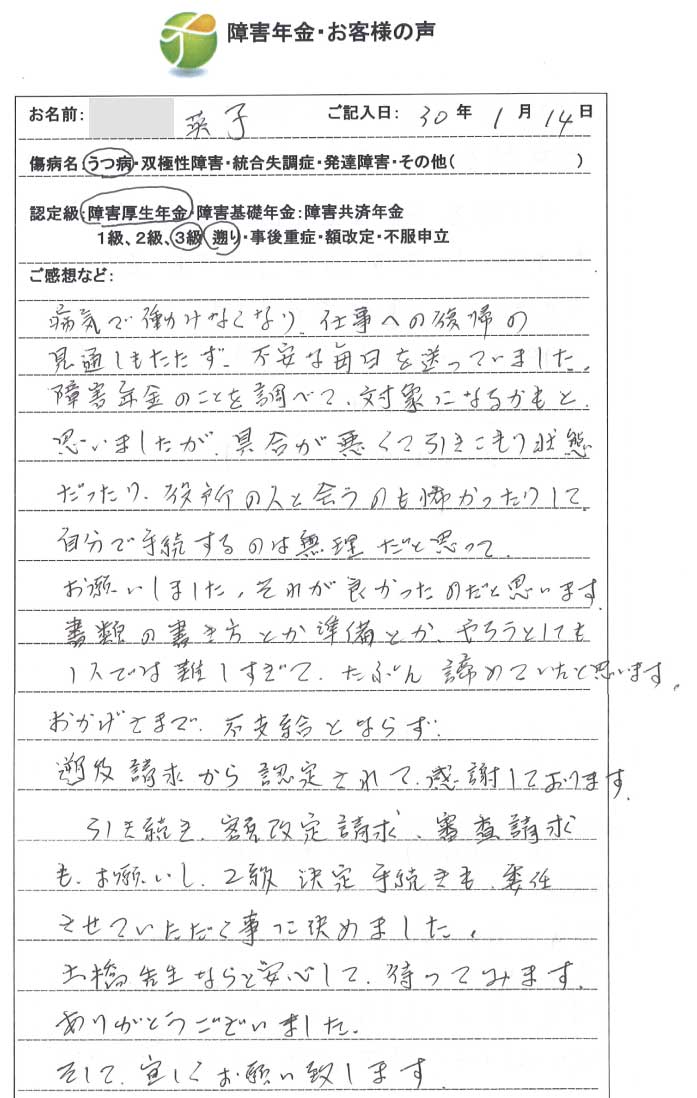 障害年金・お客様の声
お名前: 英子 ご記入日: 30 年 1 月 14 日
傷病名:うつ病・双極性障害・統合失調症・発達障害・その他( )
認定級:障害厚生年金・障害基礎年金:障害共済年金
1級、2級、3級 遡り・事後重症・額改定・不服申立
ご感想など:
病気で働けなくなり、仕事への復帰の
見通しもたたず、不安な毎日を送っていました。
障害年金のことを調べて、対象になるかもと、
思いましたが、具合が悪くて引きこもり状態
だったり、役所の人と会うのも怖かったりして、
自分で手続するのは無理だと思って、
お願いしました。それが良かったのだと思います。
書類の書き方とか準備とか、やろうとしても
1人では難しすぎて、たぶん諦めていたと思います。
おかげさまで、不支給とならず、
遡及請求から認定されて、感謝しております。
引き続き、額改定請求、審査請求
も、お願いし、2級決定手続きも、委任
させていただく事に決めました。
土橋先生ならと安心して、待ってみます。
ありがとうございました。
そして、宜しくお願い致します。